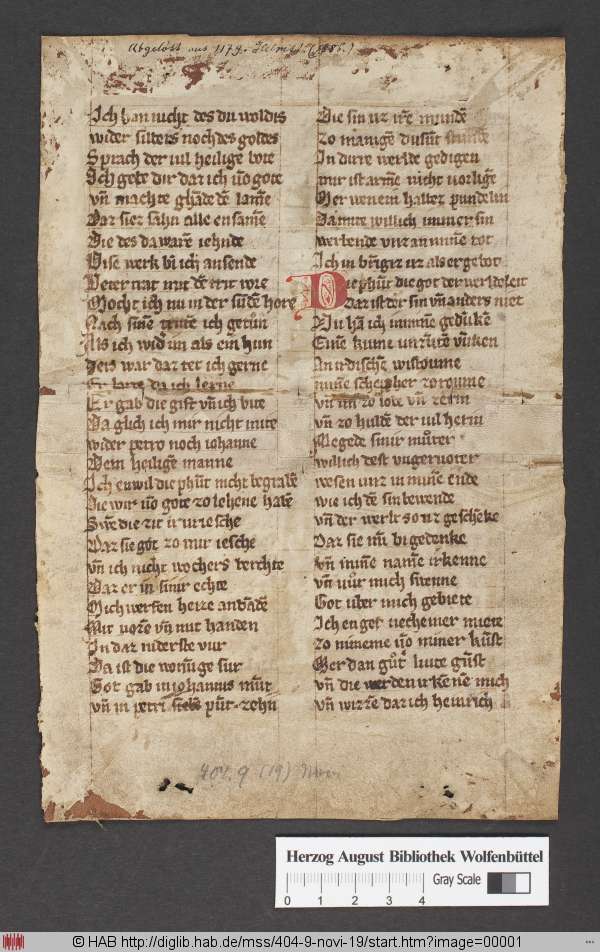 Abgelöst aus 1179. Helmst. (1886.)
Ich han nicht des du woldis
wider silbers noch des goldes
Sprach der vil heilige bote
Ich gebe dir daz ich vō gote
vn̄ machte den lamē
Daz siez sahn alle ensamē
Die des da warē iehnde
Dise werk bi ich ansende
Peter trat mit wie
Mocht ich nu in der sūdē hore
Nach sinē ich getūn
Als ich ein hun
Hets war daz tet ich gerne
da ich lerne
Er gab die gift vn̄ ich bite
Da glich ich mir nicht mite
wider petro noch iohanne
Dem heiligē manne
Ich enwil die phūt nicht begrabē
Die wir vō gote zo lehene habē
Swē die zit ir vriesche
Daz sie got zo mir iesche
vn̄ ich nicht wochers berchte
Daz er in sinir echte
Mich werfen heize andādē
Mit voze vn̄ mit handen
In daz niderste vur
Da ist die wonūge sur
Got gab in iohannis mūt
vn̄ in petri sielē pūt zehn
Die sin vz irē munde
zo manigē dusūt stunde
In dirre werlde gedigen
mir ist armē nicht vorligē
Der wenem halbez pundelin
Damite willich immer sin
werbende vnz an minē tot
Ich in brīgiz vz als er gebot
Die phūt die got der werlde leit
Daz ist der sin vn̄ anders niet
Nu hā ich minne gedūkē
Eine kume vnzurte vūken
An irdischē wistoume
minē schepher zo roume
vn̄ im zo lobe vn̄ zerin
vn̄ zo hulde der vil herin
Megede sinir mūter
willich dest vngervoter
wesen vnz in minē ende
wie ich dē sin bewende
vn̄ der werlt so vz gescheke
Daz sie mī bi gedenke
vn̄ minē namē irkenne
vn̄ vūr mich swenne
Got vber mich gebiete
Ich enger iecheiner miete
zo mineme vō miner kūst
Mer dan gūt livte gūst
vn̄ die werden irkenē mich
vn̄ wizzē daz ich heinrich
404. 9 (19) Novi
Herzog August Bibliothek Wolfenbüttel
0 1 2 3 4 Gray Scale
© HAB http://diglib.hab.de/mss/404-9-novi-19/start.htm?image=00001